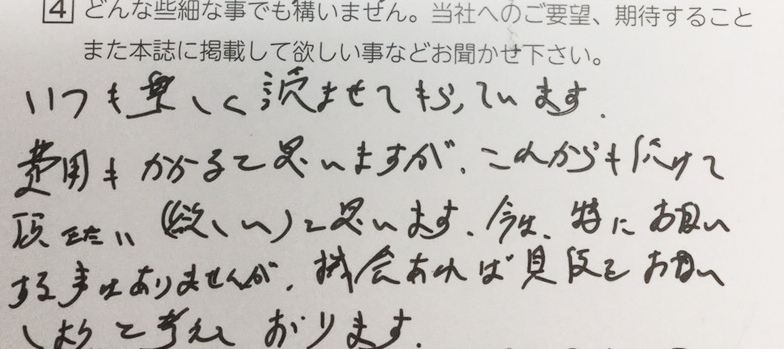 4 どんな些細な事でも構いません。当社へのご要望、期待すること
また本誌に掲載して欲しい事などお聞かせ下さい。
いつも楽しく読ませてもらっています.
費用もかかると思いますが、これからも続けて
頂きたい(欲しい)と思います。今は、特にお願い
する事はありませんが、機会あれば見積をお願い
しようと考えております.